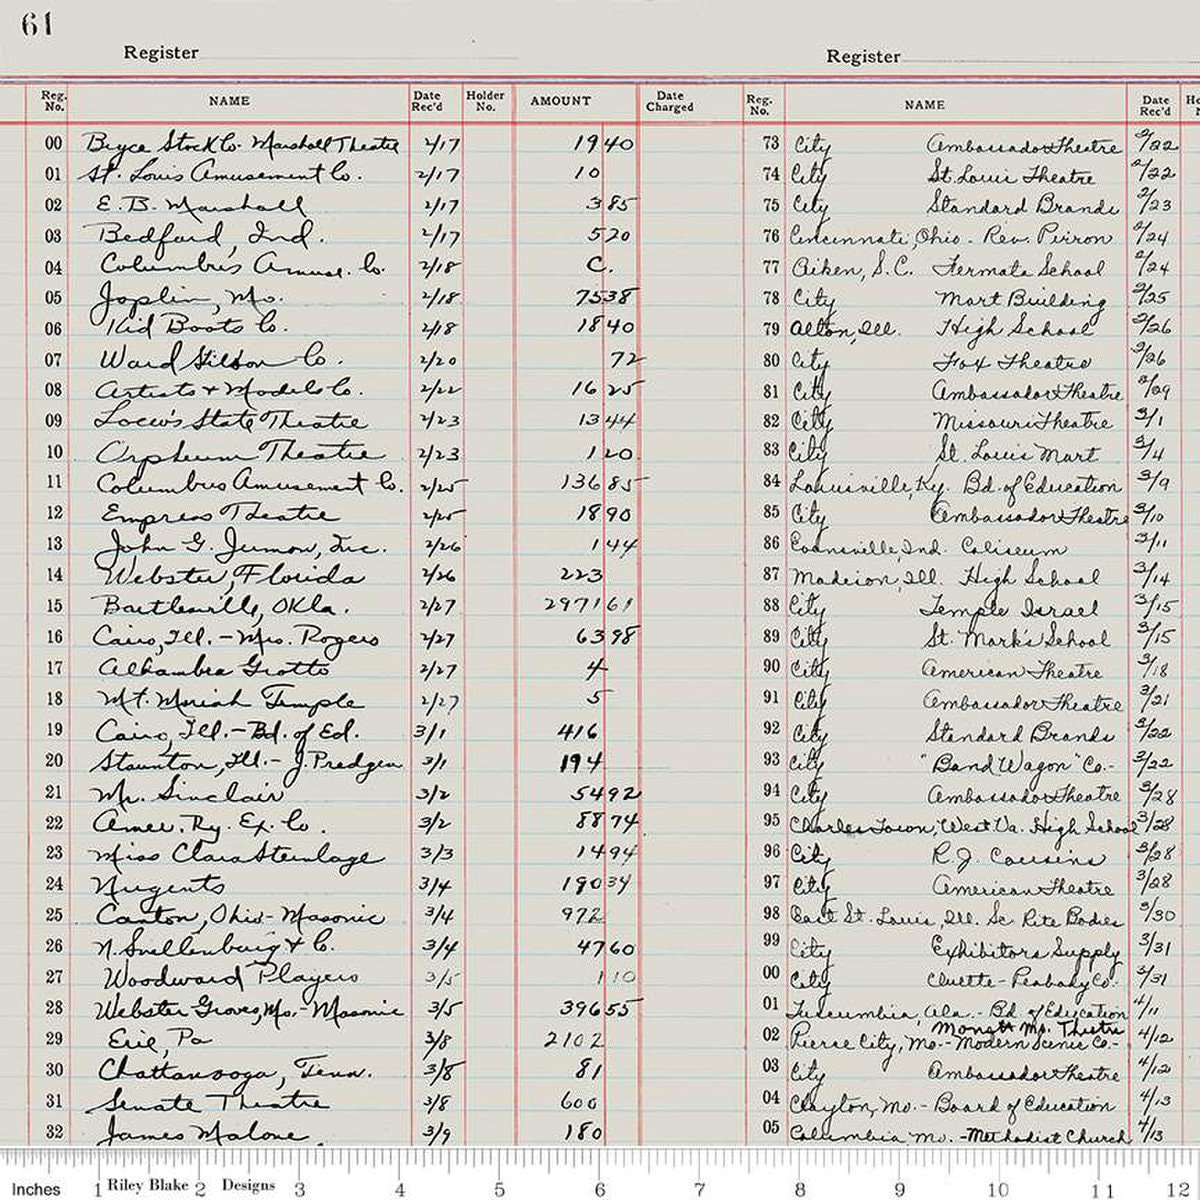 61
Register Register
Reg. No. NAME Date Rec'd Holder No. AMOUNT Date Charged Reg. No. NAME Date Rec'd
00 Bryce Stock Co. Marshall Theatre 2/17 19 40
01 St. Louis Amusement Co. 2/17 10
02 E. B. Marshall 2/17 3 85
03 Bedford, Ind. 2/17 520
04 Columbus Amuse. Co. 2/18 C.
05 Joplin, Mo. 2/18 75 38
06 Kid Boots Co. 2/18 18 40
07 Ward Co. 2/20 72
08 Artists + Models Co. 2/22 16 25
09 Loew's State Theatre 2/23 13 44
10 Orpheum Theatre 2/23 1 20
11 Columbus Amusement Co. 2/25 136 85
12 Empress Theatre 2/25 18 90
13 John G. Inc. 2/26 1 44
14 Webster, Florida 2/26 223
15 Bartlesville, Okla. 2/27 2971 61
16 Cairo, Ill. - Mrs. Rogers 2/27 63 98
17 Alhambra Grotto 2/27 4
18 Mt. Moriah Temple 2/27 5
19 Cairo, Ill. - Bd. of Ed. 3/1 416
20 Staunton, Ill. - J. Predgen 3/1 194
21 Mr. Sinclair 3/2 54 92
22 Amer. Ry. Ex. Co. 3/2 88 74
23 Miss Clara Steinlage 3/3 14 94
24 Nugents 3/4 190 34
25 Canton, Ohio - Masonic 3/4 972
26 N. Snellenburg + Co. 3/4 47 60
27 Woodward Players 3/5 1 10
28 Webster Groves, Mo. - Masonic 3/5 396 55
29 Erie, Pa 3/8 2102
30 Chattanooga, Tenn. 3/8 81
31 Senate Theatre 3/8 600
32 James Malone 3/9 180
73 City Ambassador Theatre 2/22
74 City St. Louis Theatre 2/22
75 City Standard Brands 2/23
76 Cincinnati, Ohio - Rev. 2/24
77 Aiken, S.C. Fermata School 2/24
78 City Mart Building 2/25
79 Alton, Ill. High School 2/26
80 City Fox Theatre 2/26
81 City Ambassador Theatre 2/29
82 City Missouri Theatre 3/1
83 City St. Louis Mart 3/4
84 Louisville, Ky. Bd. of Education 3/9
85 City Ambassador Theatre 3/10
86 Evansville, Ind. Coliseum 3/11
87 Madison, Ill. High School 3/14
88 City Temple Israel 3/15
89 City St. Mark's School 3/15
90 City American Theatre 3/18
91 City Ambassador Theatre 3/21
92 City Standard Brands 3/22
93 City "Band Wagon" Co.- 3/22
94 City Ambassador Theatre 3/28
95 Charles Town, West Va. High School 3/28
96 City R.J. Cousins 3/28
97 City American Theatre 3/28
98 East St. Louis, Ill. Sc. Rite Bodies 3/30
99 City Exhibitors Supply 3/31
00 City Cluette-Peabody Co. 3/31
01 Tuscumbia, Ala. - Bd. of Education 4/11
Monett Mo. Theatre
02 Pierce City, Mo.- Modern Scenic Co.- 4/12
03 City Ambassador Theatre 4/12
04 Clayton, Mo. - Board of Education 4/13
05 Columbia Mo. - Methodist Church 4/13
Inches 1 Riley Blake 2 Designs 3 4 5 6 7 8 9 10 11 12